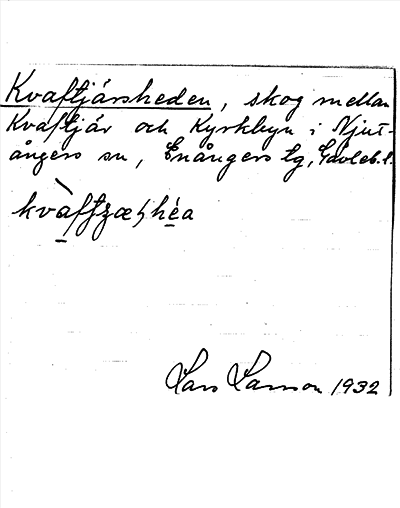 Kvaftjärsheden, skog mellan
Kvaftjär och Kyrkbyn i Njut-
ångers sn, Enångers tg, Gävleb. l.
kvàftʒæꞎhéa
Lars Larsson 1932